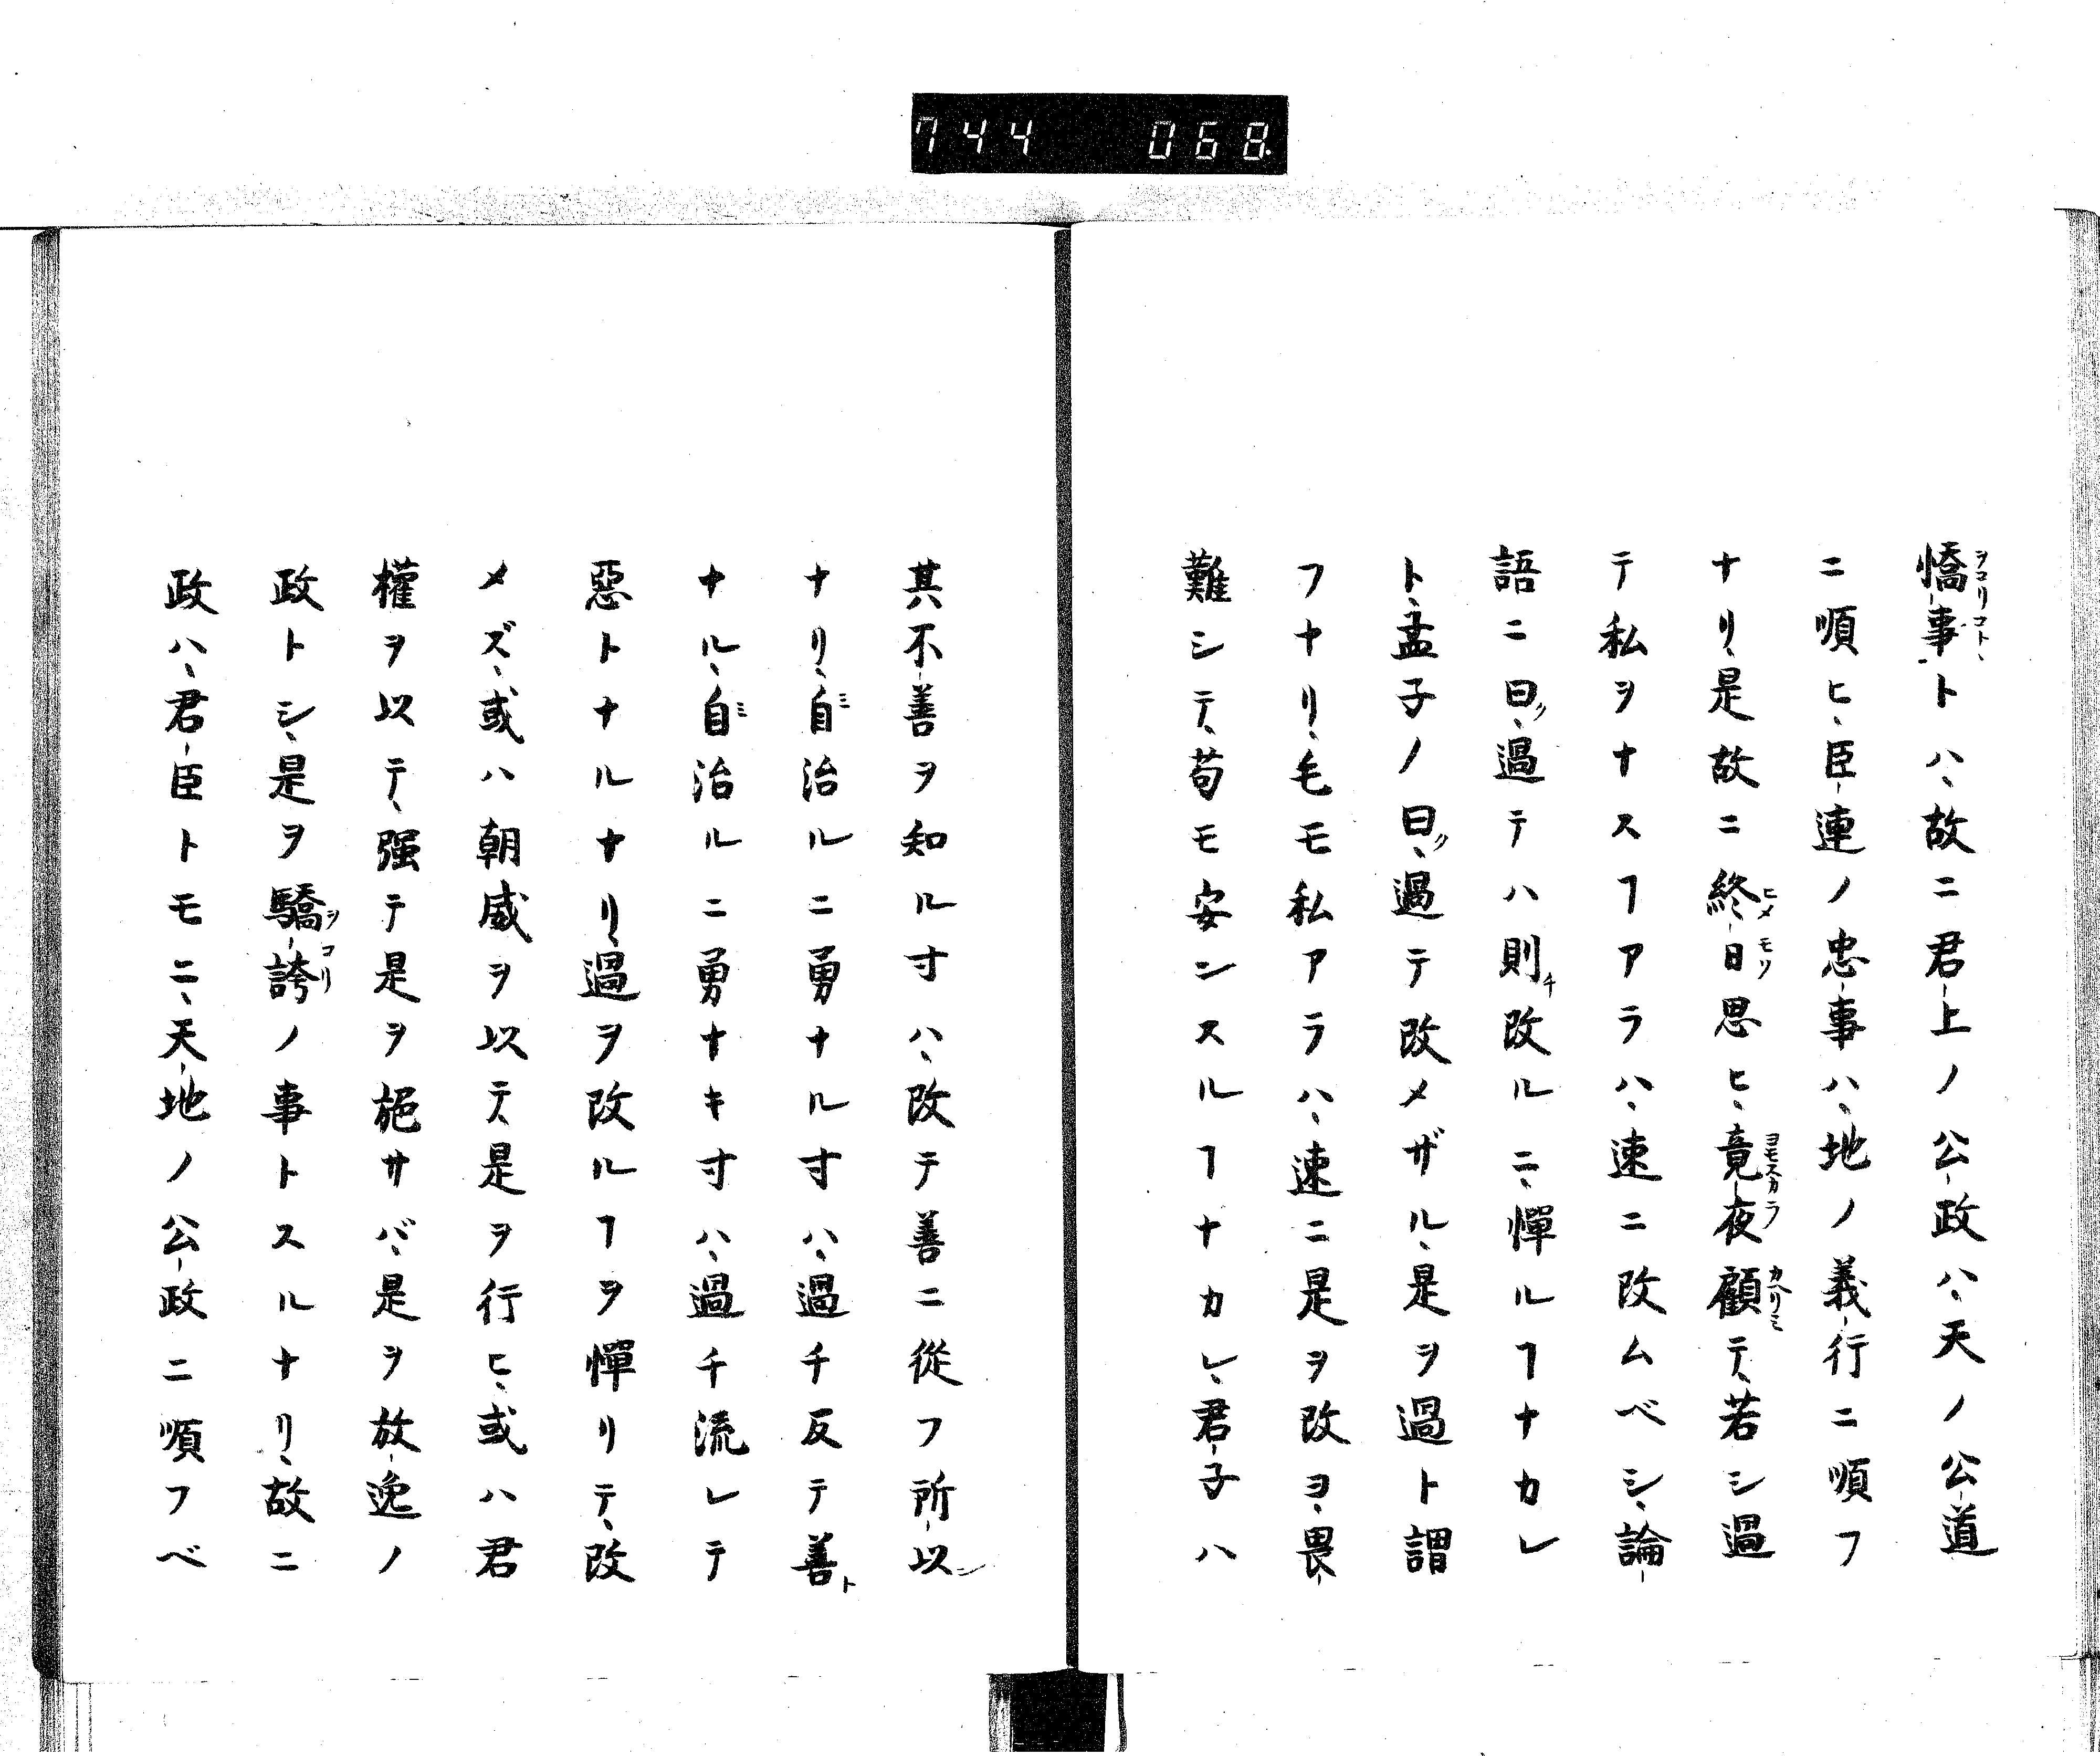 744 068
憍事トハ、故ニ君上ノ公政ハ、天ノ公道
ニ順ヒ、臣連ノ忠事ハ、地ノ義行ニ順フ
ナリ、是故ニ終日思ヒ、竟夜顧テ、若シ過
テ私ヲナスヿアラハ、速ニ改ムベシ、論
語ニ曰、過テハ則改ルニ、憚ルヿナカレ
ト、孟子ノ曰、過テ改メザル、是ヲ過ト謂
フナリ、毛モ私アラハ、速ニ是ヲ改ヨ、畏
難シテ、苟モ安ンスルヿナカレ、君子ハ
其不善ヲ知ル寸ハ、改テ善ニ從フ所以
ナリ、自治ルニ勇ナル寸ハ、過チ反テ善
ナル、自治ルニ勇ナキ寸ハ、過チ流レテ
惡トナルナリ、過ヲ改ルヿヲ憚リテ、改
メズ、或ハ朝威ヲ以テ、是ヲ行ヒ、或ハ君
權ヲ以テ、强テ是ヲ施サバ、是ヲ放逸ノ
政トシ、是ヲ驕誇ノ事トスルナリ、故ニ
政ハ、君臣トモニ、天地ノ公政ニ順フベ